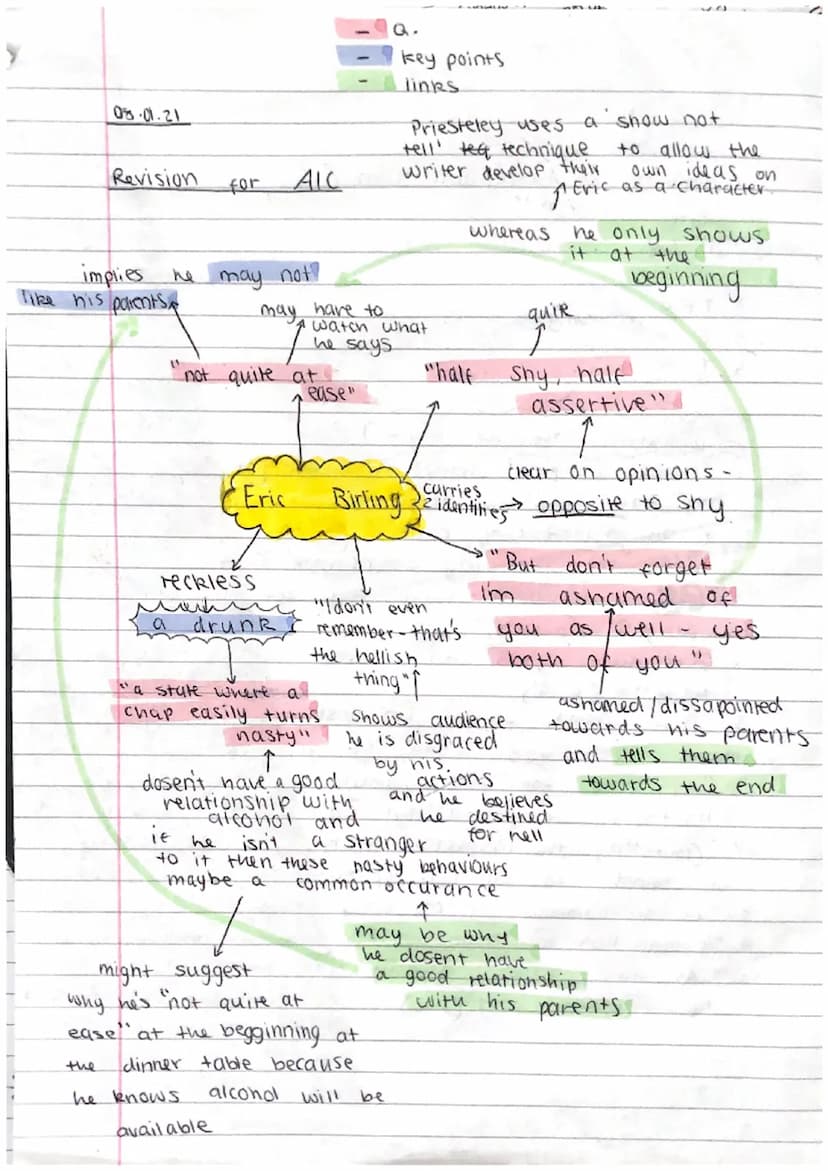 - Q.
- key points
- links
08.01.21
Revision for AIC
Priesteley uses a 'show not
tell' teq technique to allow the
writer develop their own ideas on
Eric as a character.
whereas he only shows
it at the
beginning
implies he may not
like his parents
may have to
watch what
he says
quite
"not quite at
ease"
"half shy, half
assertive"
clear on opinions -
opposite to shy
Eric Birling
carries
2 identities
"But don't forget
i'm ashamed of
you as well - yes
both of you"
ashamed/dissapointed
towards his parents
and tells them
towards the end
reckless
a drunk
"I don't even
remember - that's
the hellish
thing"
shows audience
he is disgraced
by his
actions
and he believes
he destined
for hell
"a state where a
chap easily turns
nasty"
dosen't have a good
relationship with
alcohol and
if he isn't a stranger
to it then these nasty behaviours
maybe a common occurance
may be why
he dosent have
a good relationship
with his parents
might suggest
why he's "not quite at
ease" at the begginning at
the dinner table because
he knows alcohol will be
available